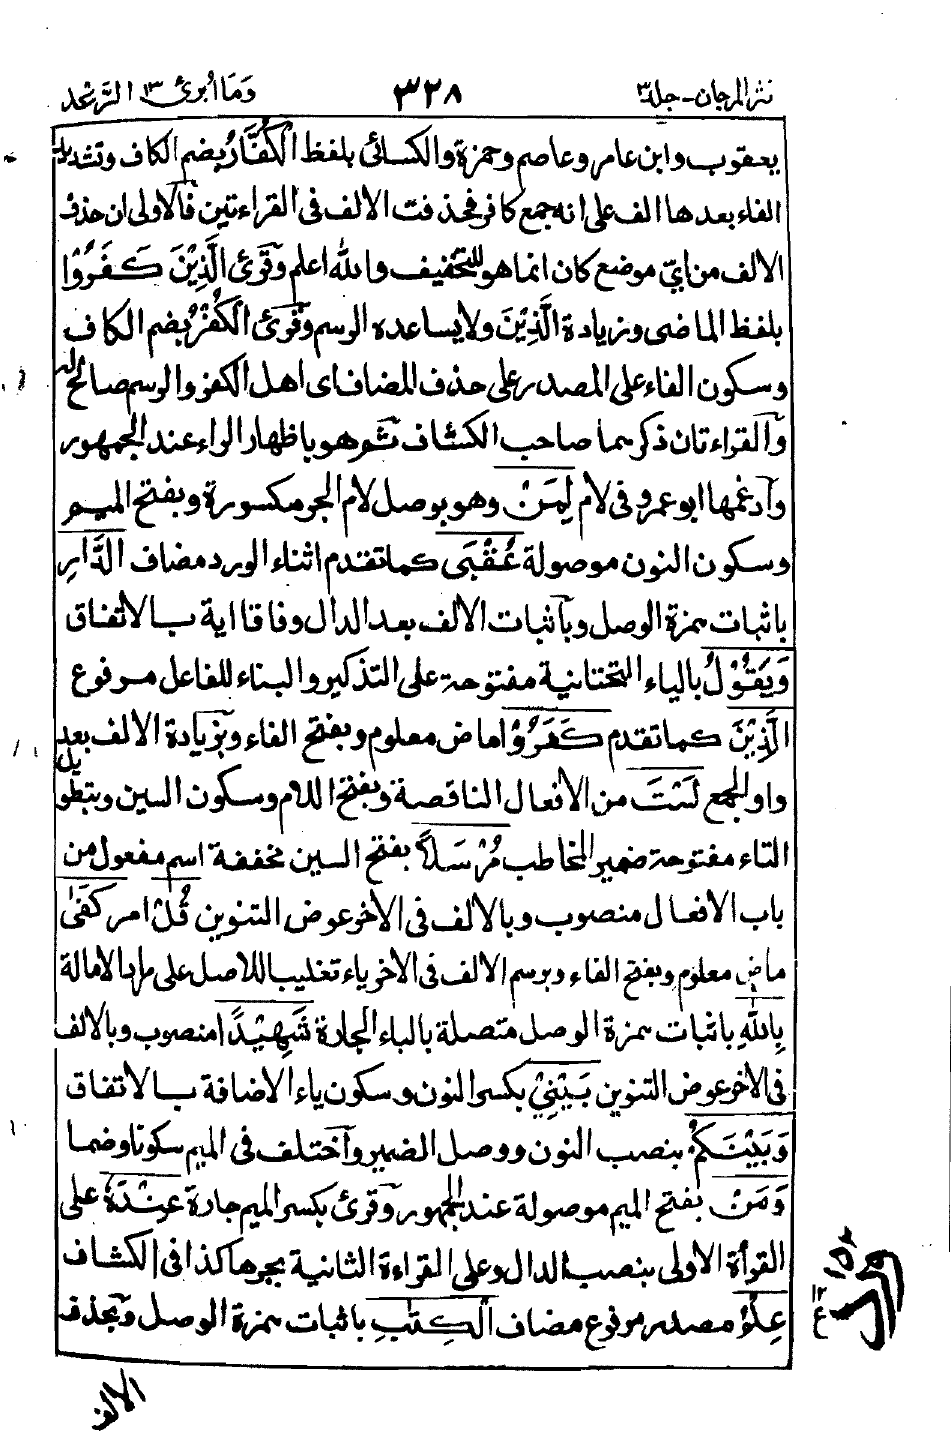 نثر المرجان - جلد ٣
٣٢٨
وَمَا اُبرئ ١٣ الرَّعد
يعقوب وابن عامر وعاصم وحمزة والكسائى بلفظ الْكُفَّارُ بضم الكاف وتشديد
الفاء بعدها الف على انه جمع كافر فحذفت الالف فى القراءتين فالاولى ان حذف
الالف من اىّ موضع كان انما هو للتخفيف والله اعلم وقرئ الَّذِيْنَ كَفَرُوْا
بلفظ الماضى وزيادة الَّذِيْنَ ولا يساعده الرسم وقرئ الْكُفْرُ بضم الكاف
وسكون الفاء على المصدر على حذف المضاف اى اهل الكفر والرسم صالح له
والقراءتان ذكرهما صاحب الكشاف ثم هو باظهار الراء عند الجمهور
وادغمها ابو عمرو فى لام لِمَنْ وهو بوصل لام الجر مكسورة وبفتح الميم
وسكون النون موصولة عُقْبَى كما تقدم اثناء الورد مضاف الدَّارِ
باثبات همزة الوصل وباثبات الالف بعد الدال وفاقا اية بالاتفاق
وَيَقُوْلُ بالياء التحتانية مفتوحة على التذكير والبناء للفاعل مرفوع
الَّذِيْنَ كما تقدم كَفَرُوْا ماض معلوم وبفتح الفاء وبزيادة الالف بعد
واو الجمع لَسْتَ من الأفعال الناقصة وبفتح اللام وسكون السين وبتطويل
التاء مفتوحة ضمير المخاطب مُرْسَلًا بفتح السين مخففة اسم مفعول من
باب الافعال منصوب وبالالف فى الاخر عوض التنوين قُلْ امر كَفٰى
ماض معلوم وبفتح الفاء وبرسم الالف فى الاخر ياء تغليبا للاصل على مراد الامالة
بِاللهِ باثبات همزة الوصل متصلة بالباء الجارة شَهِيْدًا منصوب وبالالف
فى الاخر عوض التنوين بَيْنِيْ بكسر النون وسكون ياء الاضافة بالاتفاق
وَبَيْنَكُمْ بنصب النون ووصل الضمير واختلف فى الميم سكونا وضما
وَمَنْ بفتح الميم موصولة عند الجمهور وقرئ بكسر الميم جارة عِنْدَهٗ على
القرأة الاولى بنصب الدال وعلى القراءة الثانية بجرها كذا فى الكشاف
عِلْمُ مصدر مرفوع مضاف الْكِتٰبِ باثبات همزة الوصل وبحذف
الالف